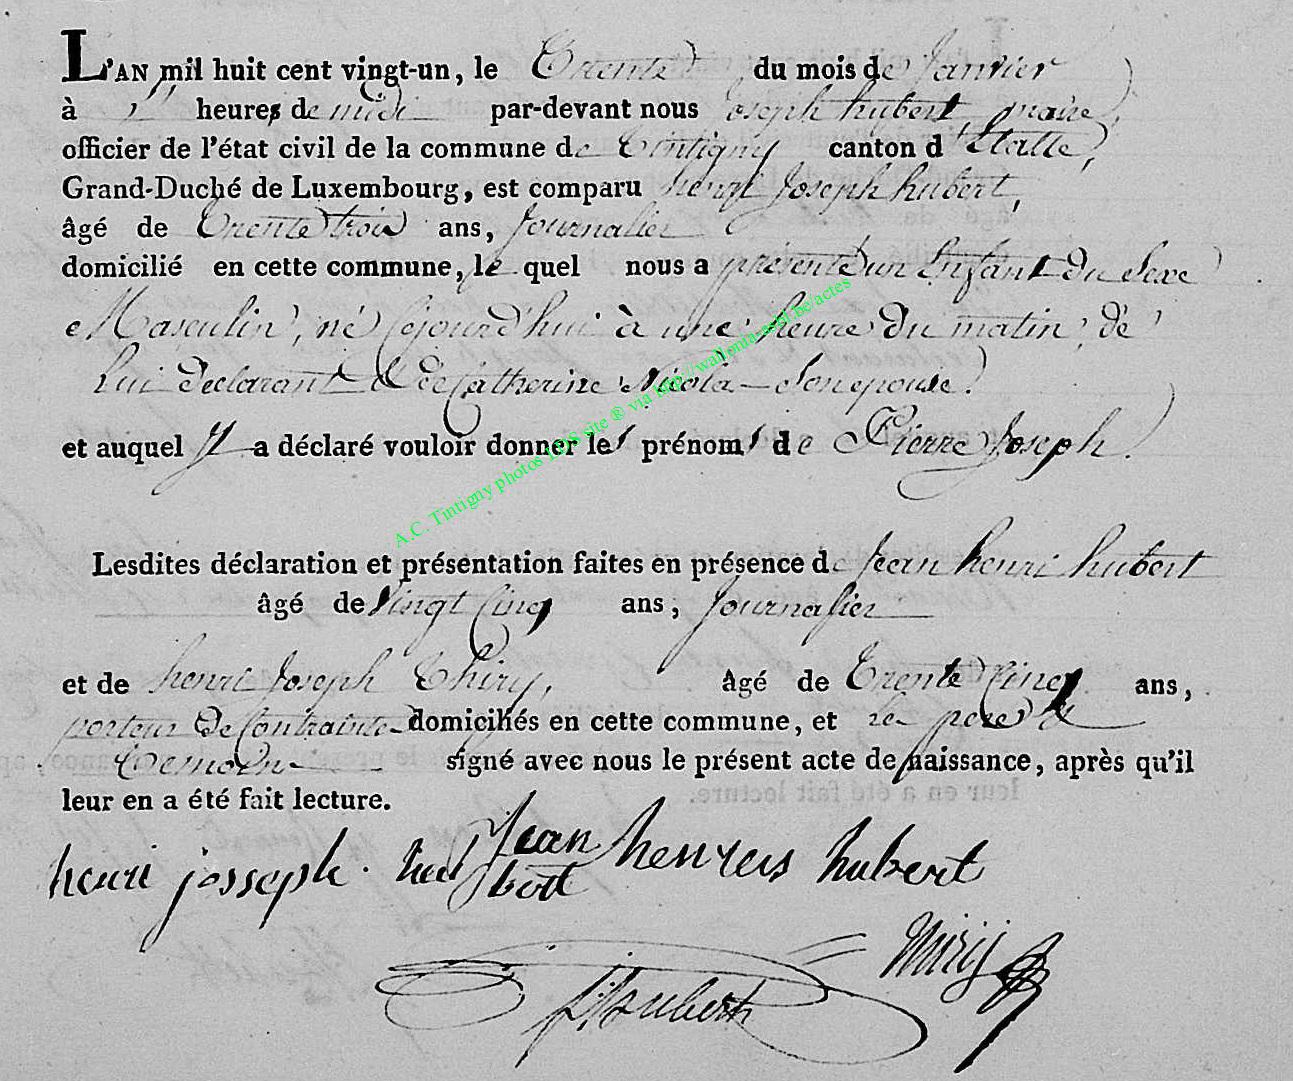 L'AN mil huit cent vingt-un, le Trente du mois de Janvier
à heures de midi par-devant nous joseph hubert, maire,
officier de l'état civil de la commune de Tintigny canton d'Etalle,
Grand-Duché de Luxembourg, est comparu henry Joseph hubert,
âgé de Trente trois ans, Journalier
domicilié en cette commune, le quel nous a présenté un Enfant du Sexe
Masculin, né cejourd'hui à une heure du matin, de
Lui déclarant et de Catherine Nicola Son épouse.
et auquel il a déclaré vouloir donner les prénoms de Pierre Joseph.
A.C. Tintigny photos LDS site ® via http://wallonia-asbl.be/actes
Lesdites déclaration et présentation faites en présence de Jean henri hubert
âgé de Vingt Cinq ans, Journalier
et de henri Joseph Thiry, âgé de Trente Cinq ans,
porteur de Contrainte domiciliés en cette commune, et le pere et
Temoin signé avec nous le présent acte de naissance, après qu'il
leur en a été fait lecture.
henri josseph hu
bert
Jean henrris hubert
thirij
hubert